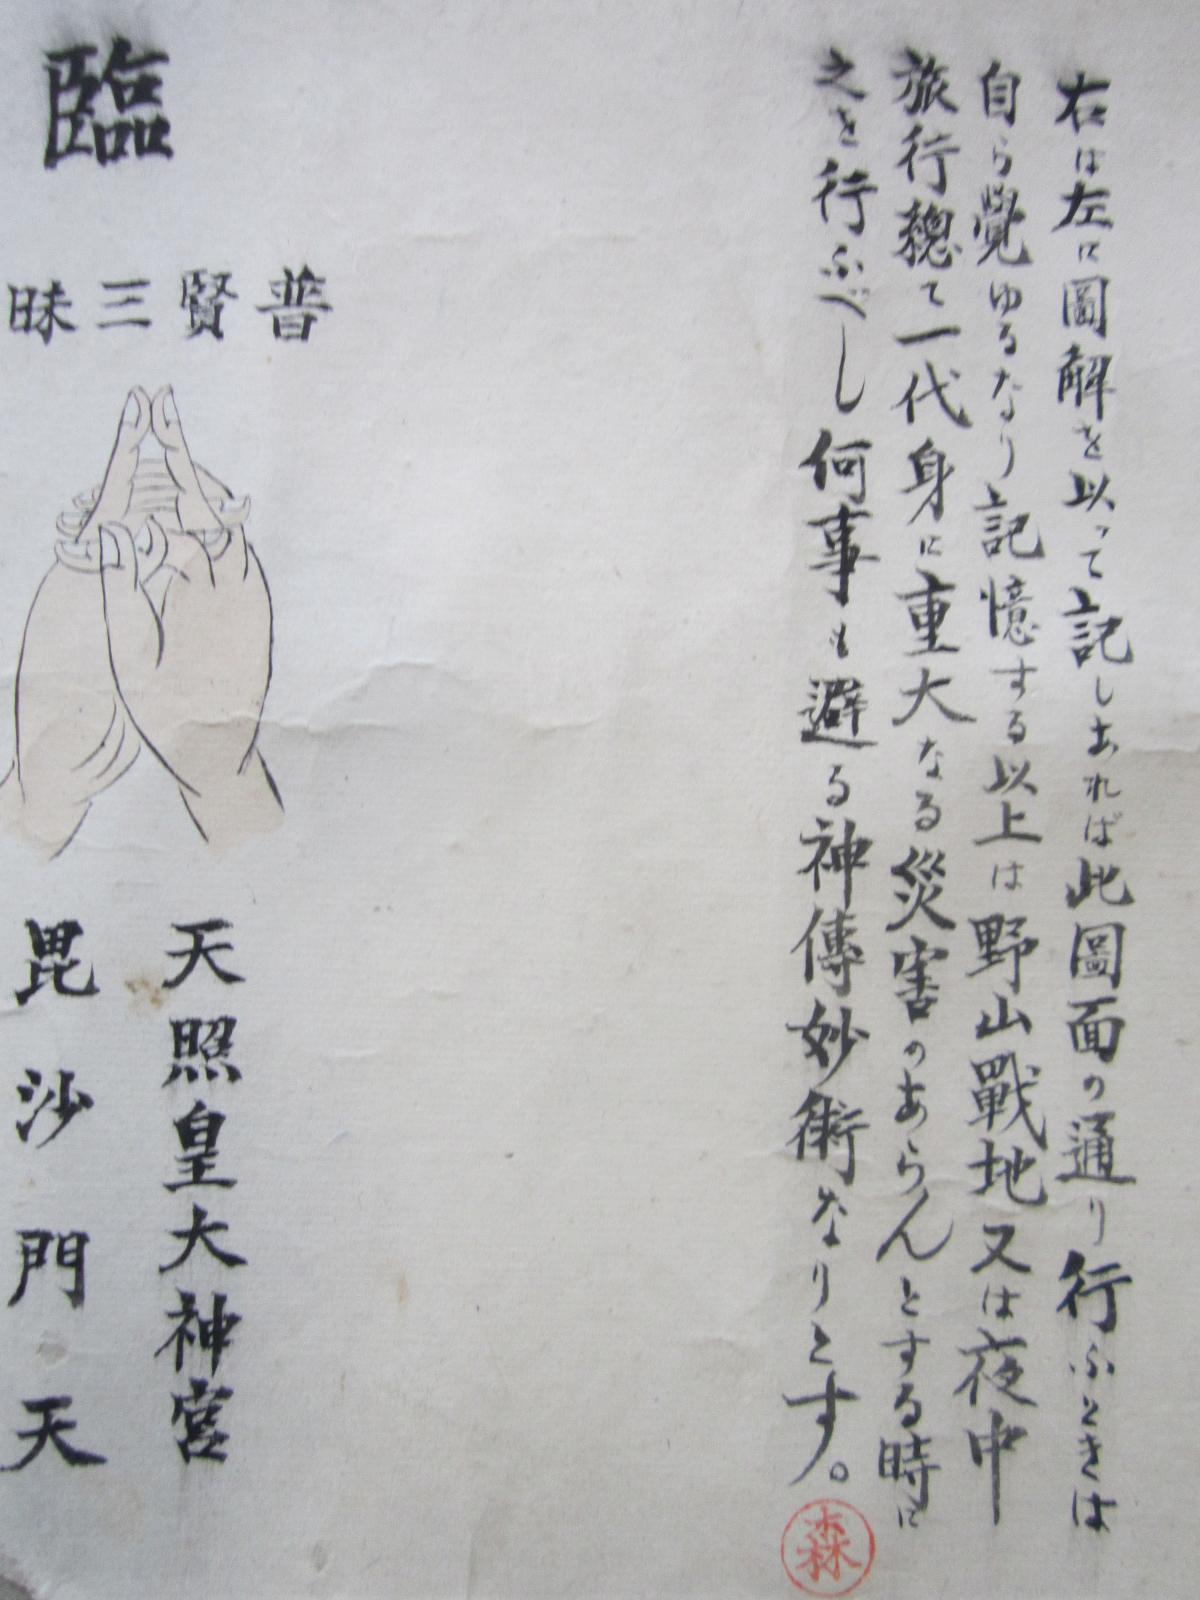 右は左に圖解を以って記しあれば此圖面の通り行ふときは
自ら覺ゆるなり記憶する以上は野山戰地又は夜中
旅行總て一代身に重大なる災害のあらんとする時に
之を行ふべし何事も避る神傳妙術なりとす。
森
臨
普賢三昧
天照皇大神宮
毘沙門天